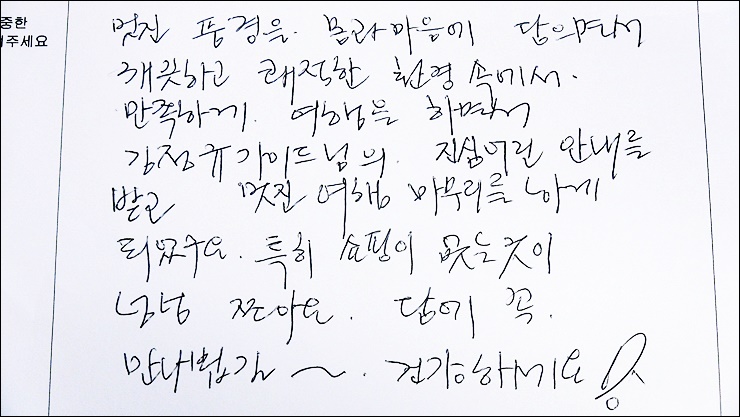 중한
여주세요
멋진 풍경을 몸과 마음에 담으면서
깨끗하고 쾌적한 환경 속에서.
만족하게 여행을 하면서
김정규가이드님의. 진심어린 안내를
받고 멋진 여행 마무리를 하게
되었구요. 특히 쇼핑이 없는 것이
넘넘 좋아요. 담에 꼭.
만나뵙길 ~. 건강하세요